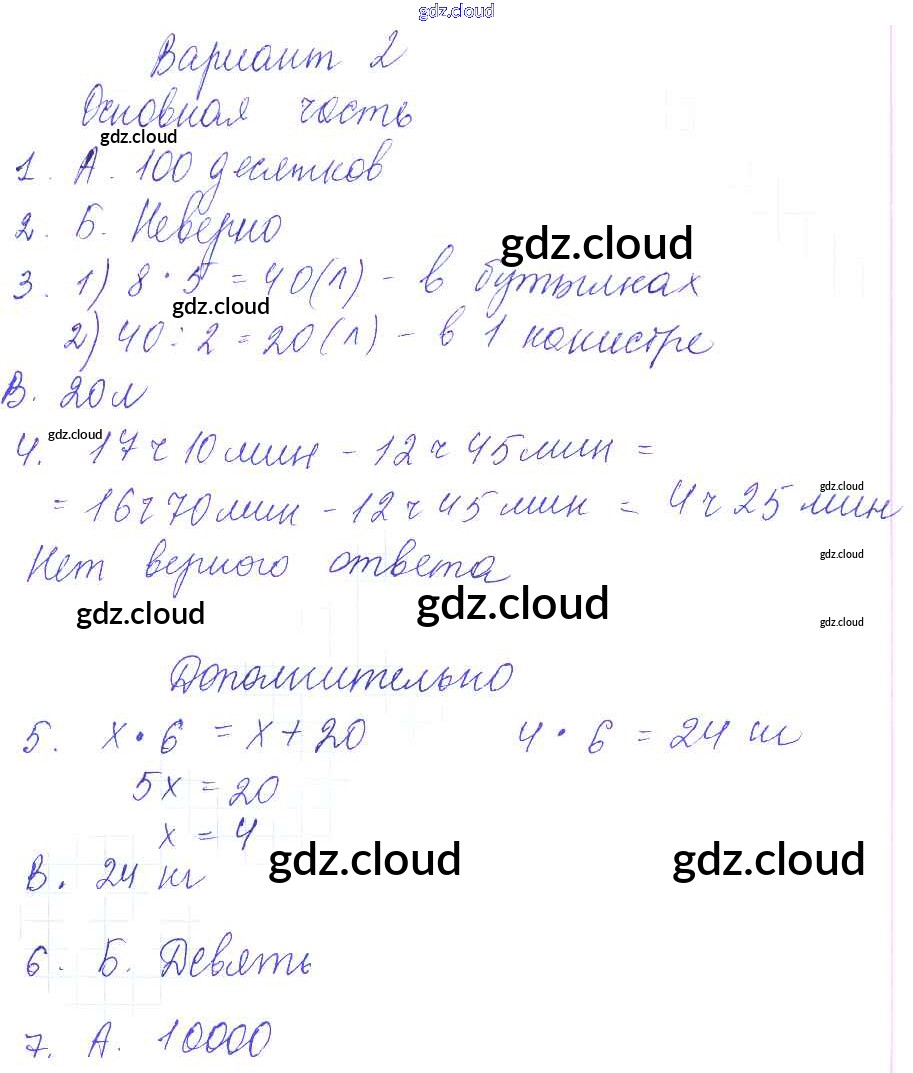 gdz.cloud
Вариант 2
Основная часть
gdz.cloud
1. А. 100 десятков
2. Б. Неверно
gdz.cloud
3. 1) 8 · 5 = 40 (л) – в бутылках
gdz.cloud
2) 40 : 2 = 20 (л) – в 1 канистре
В. 20 л
gdz.cloud
4. 17 ч 10 мин – 12 ч 45 мин =
gdz.cloud
= 16 ч 70 мин – 12 ч 45 мин = 4 ч 25 мин
gdz.cloud
Нет верного ответа
gdz.cloud
gdz.cloud
gdz.cloud
Дополнительно
5. х · 6 = х + 20 4 · 6 = 24 кг
5х = 20
х = 4
gdz.cloud
gdz.cloud
В. 24 кг
6. Б. Девять
7. А. 10000